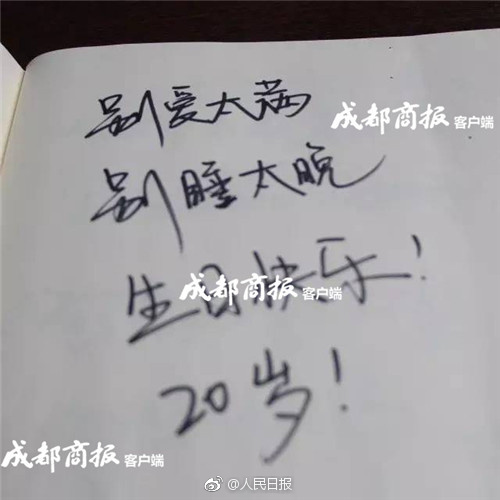 别爱太满
成都商报客户端
别睡太晚
生日快乐!
成都商报客户端
20岁!
成都商报客户端
@人民日报